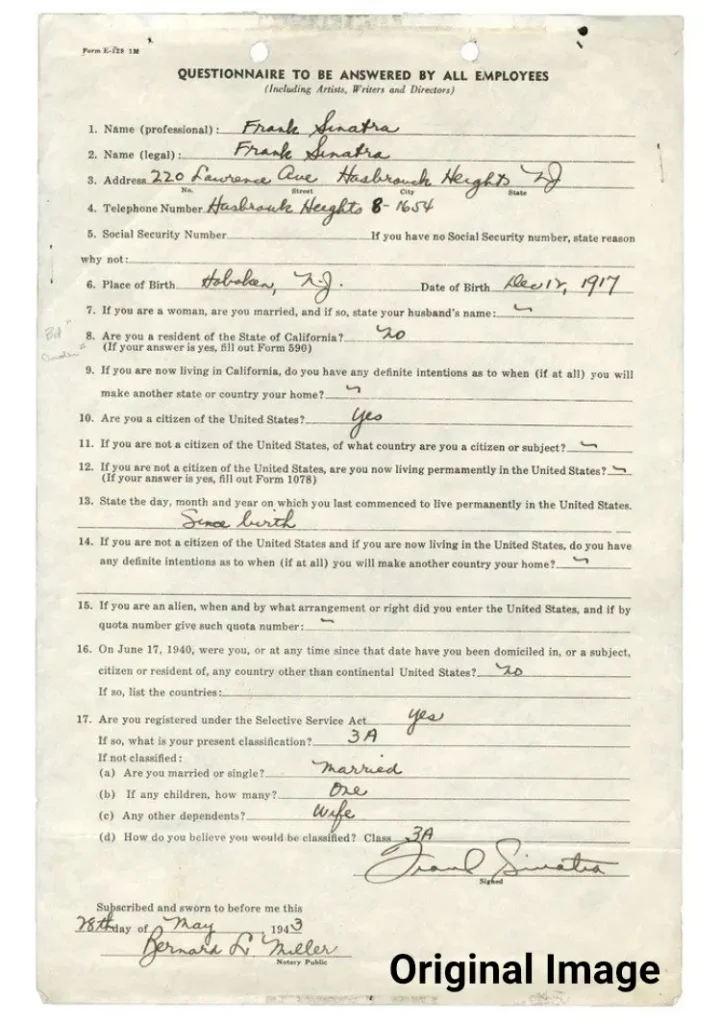 Form E-128 1M
QUESTIONNAIRE TO BE ANSWERED BY ALL EMPLOYEES
(Including Artists, Writers and Directors)
1. Name (professional): Frank Sinatra
2. Name (legal): Frank Sinatra
3. Address 220 Lawrence Ave Hasbrouck Heights NJ
No. Street City State
4. Telephone Number Hasbrouck Heights 8-1654
5. Social Security Number If you have no Social Security number, state reason
why not:
6. Place of Birth Hoboken, N.J. Date of Birth Dec 12, 1917
7. If you are a woman, are you married, and if so, state your husband's name: ~
8. Are you a resident of the State of California? No
(If your answer is yes, fill out Form 590)
9. If you are now living in California, do you have any definite intentions as to when (if at all) you will
make another state or country your home? ~
10. Are you a citizen of the United States? Yes
11. If you are not a citizen of the United States, of what country are you a citizen or subject? ~
12. If you are not a citizen of the United States, are you now living permamently in the United States? ~
(If your answer is yes, fill out Form 1078)
13. State the day, month and year on which you last commenced to live permanently in the United States.
Since birth
14. If you are not a citizen of the United States and if you are now living in the United States, do you have
any definite intentions as to when (if at all) you will make another country your home? ~
15. If you are an alien, when and by what arrangement or right did you enter the United States, and if by
quota number give such quota number: ~
16. On June 17, 1940, were you, or at any time since that date have you been domiciled in, or a subject,
citizen or resident of, any country other than continental United States? No
If so, list the countries:
17. Are you registered under the Selective Service Act Yes
If so, what is your present classification? 3A
If not classified:
(a) Are you married or single? Married
(b) If any children, how many? One
(c) Any other dependents? Wife
(d) How do you believe you would be classified? Class 3A
Frank Sinatra
Signed
Subscribed and sworn to before me this
28th day of May 1943
Bernard L. Miller
Notary Public
Original Image